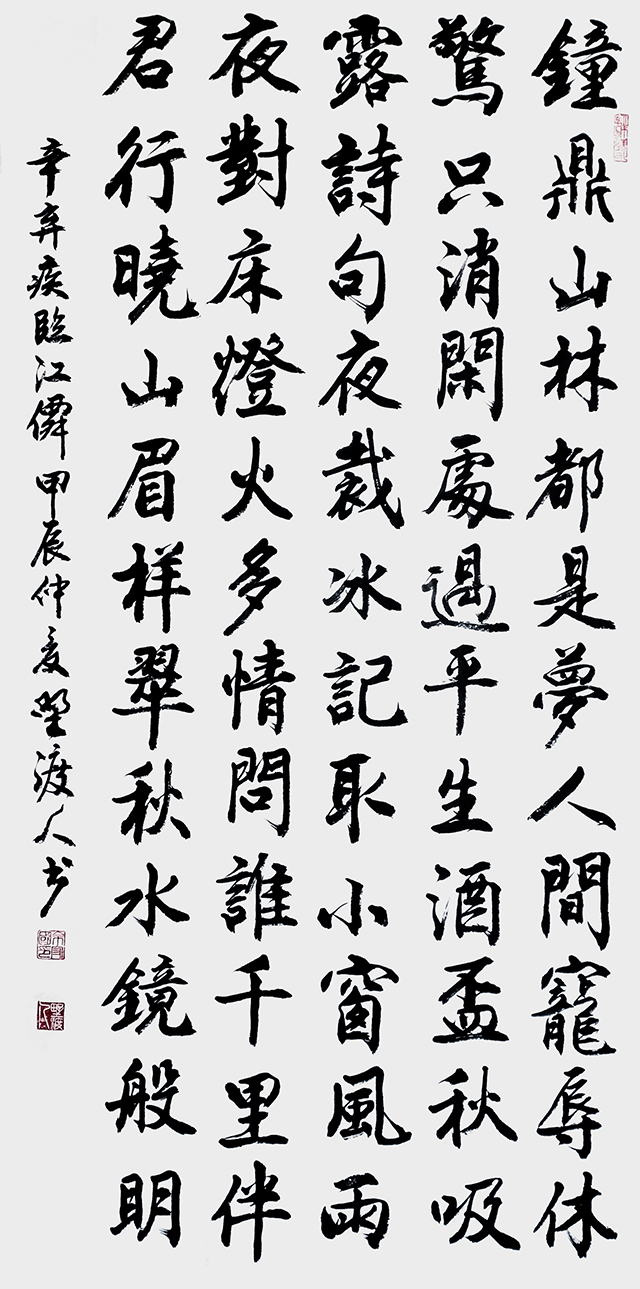 鐘鼎山林都是夢人間寵辱休
驚只消閑處過平生酒盃秋吸
露詩句夜裁冰記取小窗風雨
夜對床燈火多情問誰千里伴
君行曉山眉样翠秋水鏡般明
辛弃疾臨江僊甲辰仲夏野渡人书